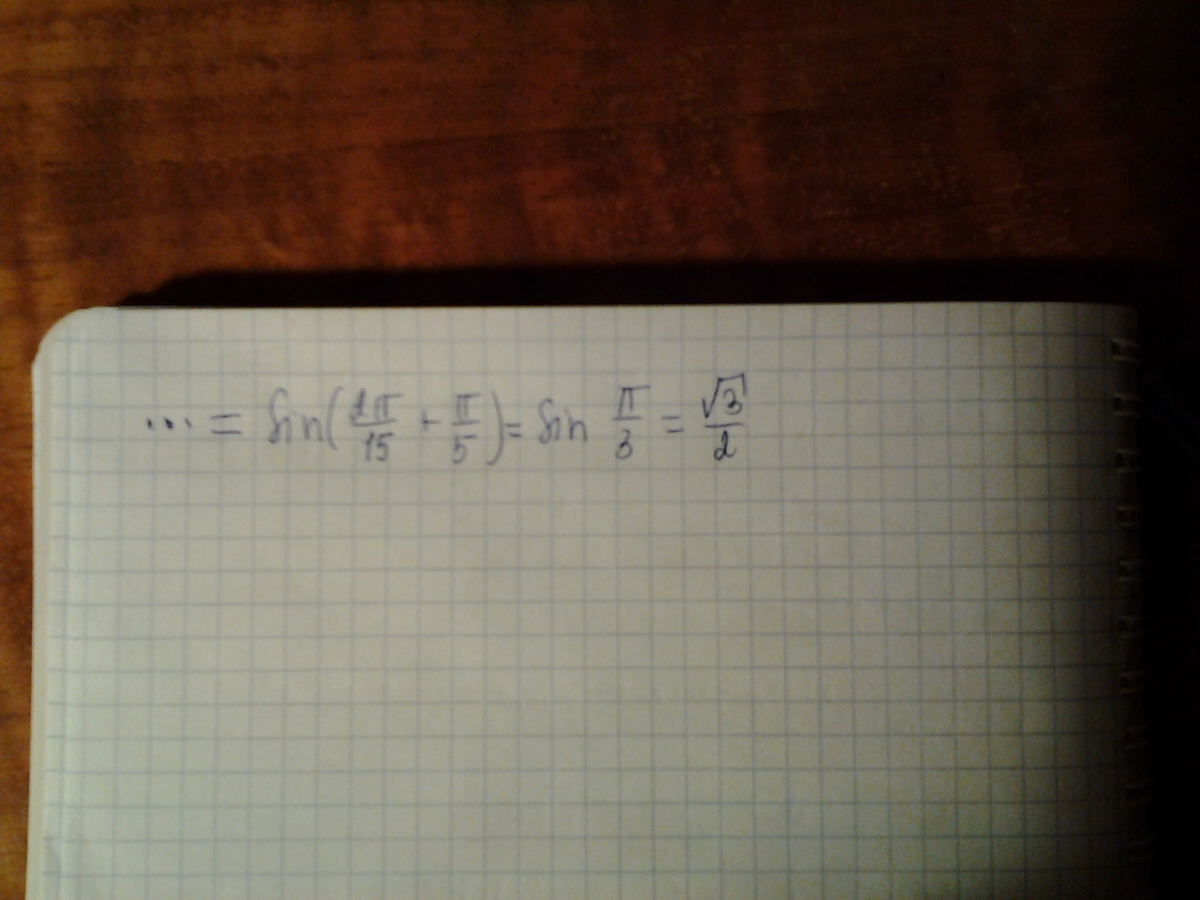 ... = sin(2π/15 + π/5) = sin π/3 = √3/2